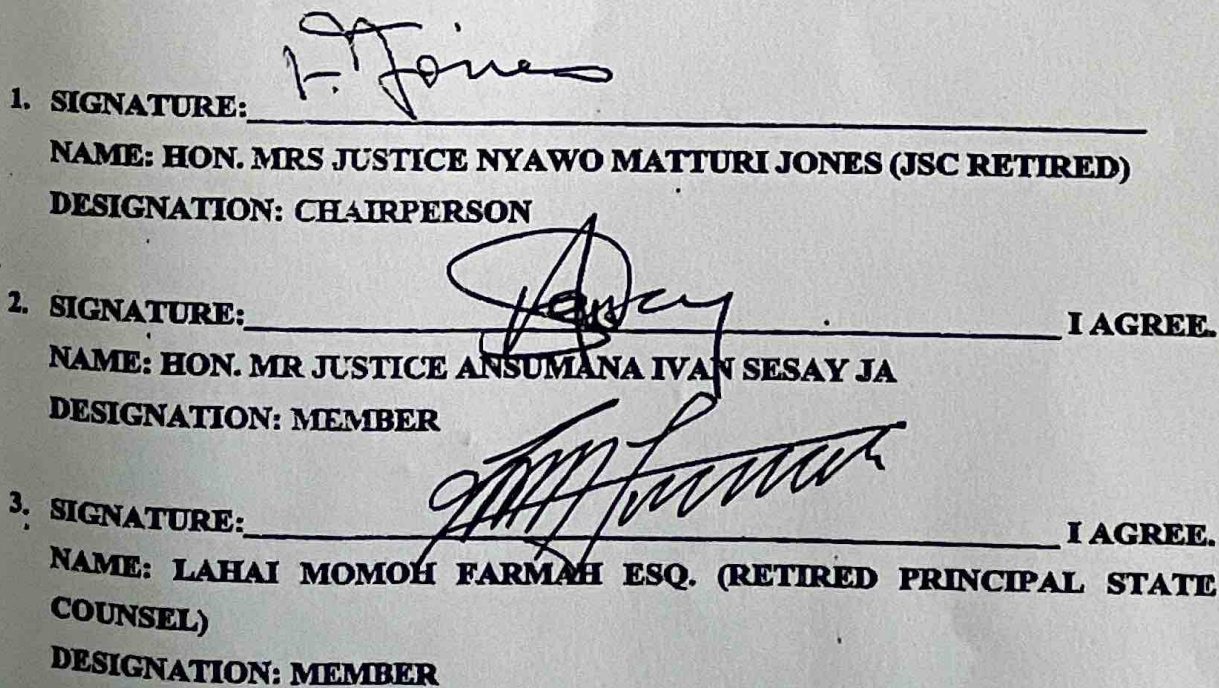 1. SIGNATURE: Jones
NAME: HON. MRS JUSTICE NYAWO MATTURI JONES (JSC RETIRED)
DESIGNATION: CHAIRPERSON
2. SIGNATURE: I AGREE.
NAME: HON. MR JUSTICE ANSUMANA IVAN SESAY JA
DESIGNATION: MEMBER
3. SIGNATURE: I AGREE.
NAME: LAHAI MOMOH FARMAH ESQ. (RETIRED PRINCIPAL STATE
COUNSEL)
DESIGNATION: MEMBER